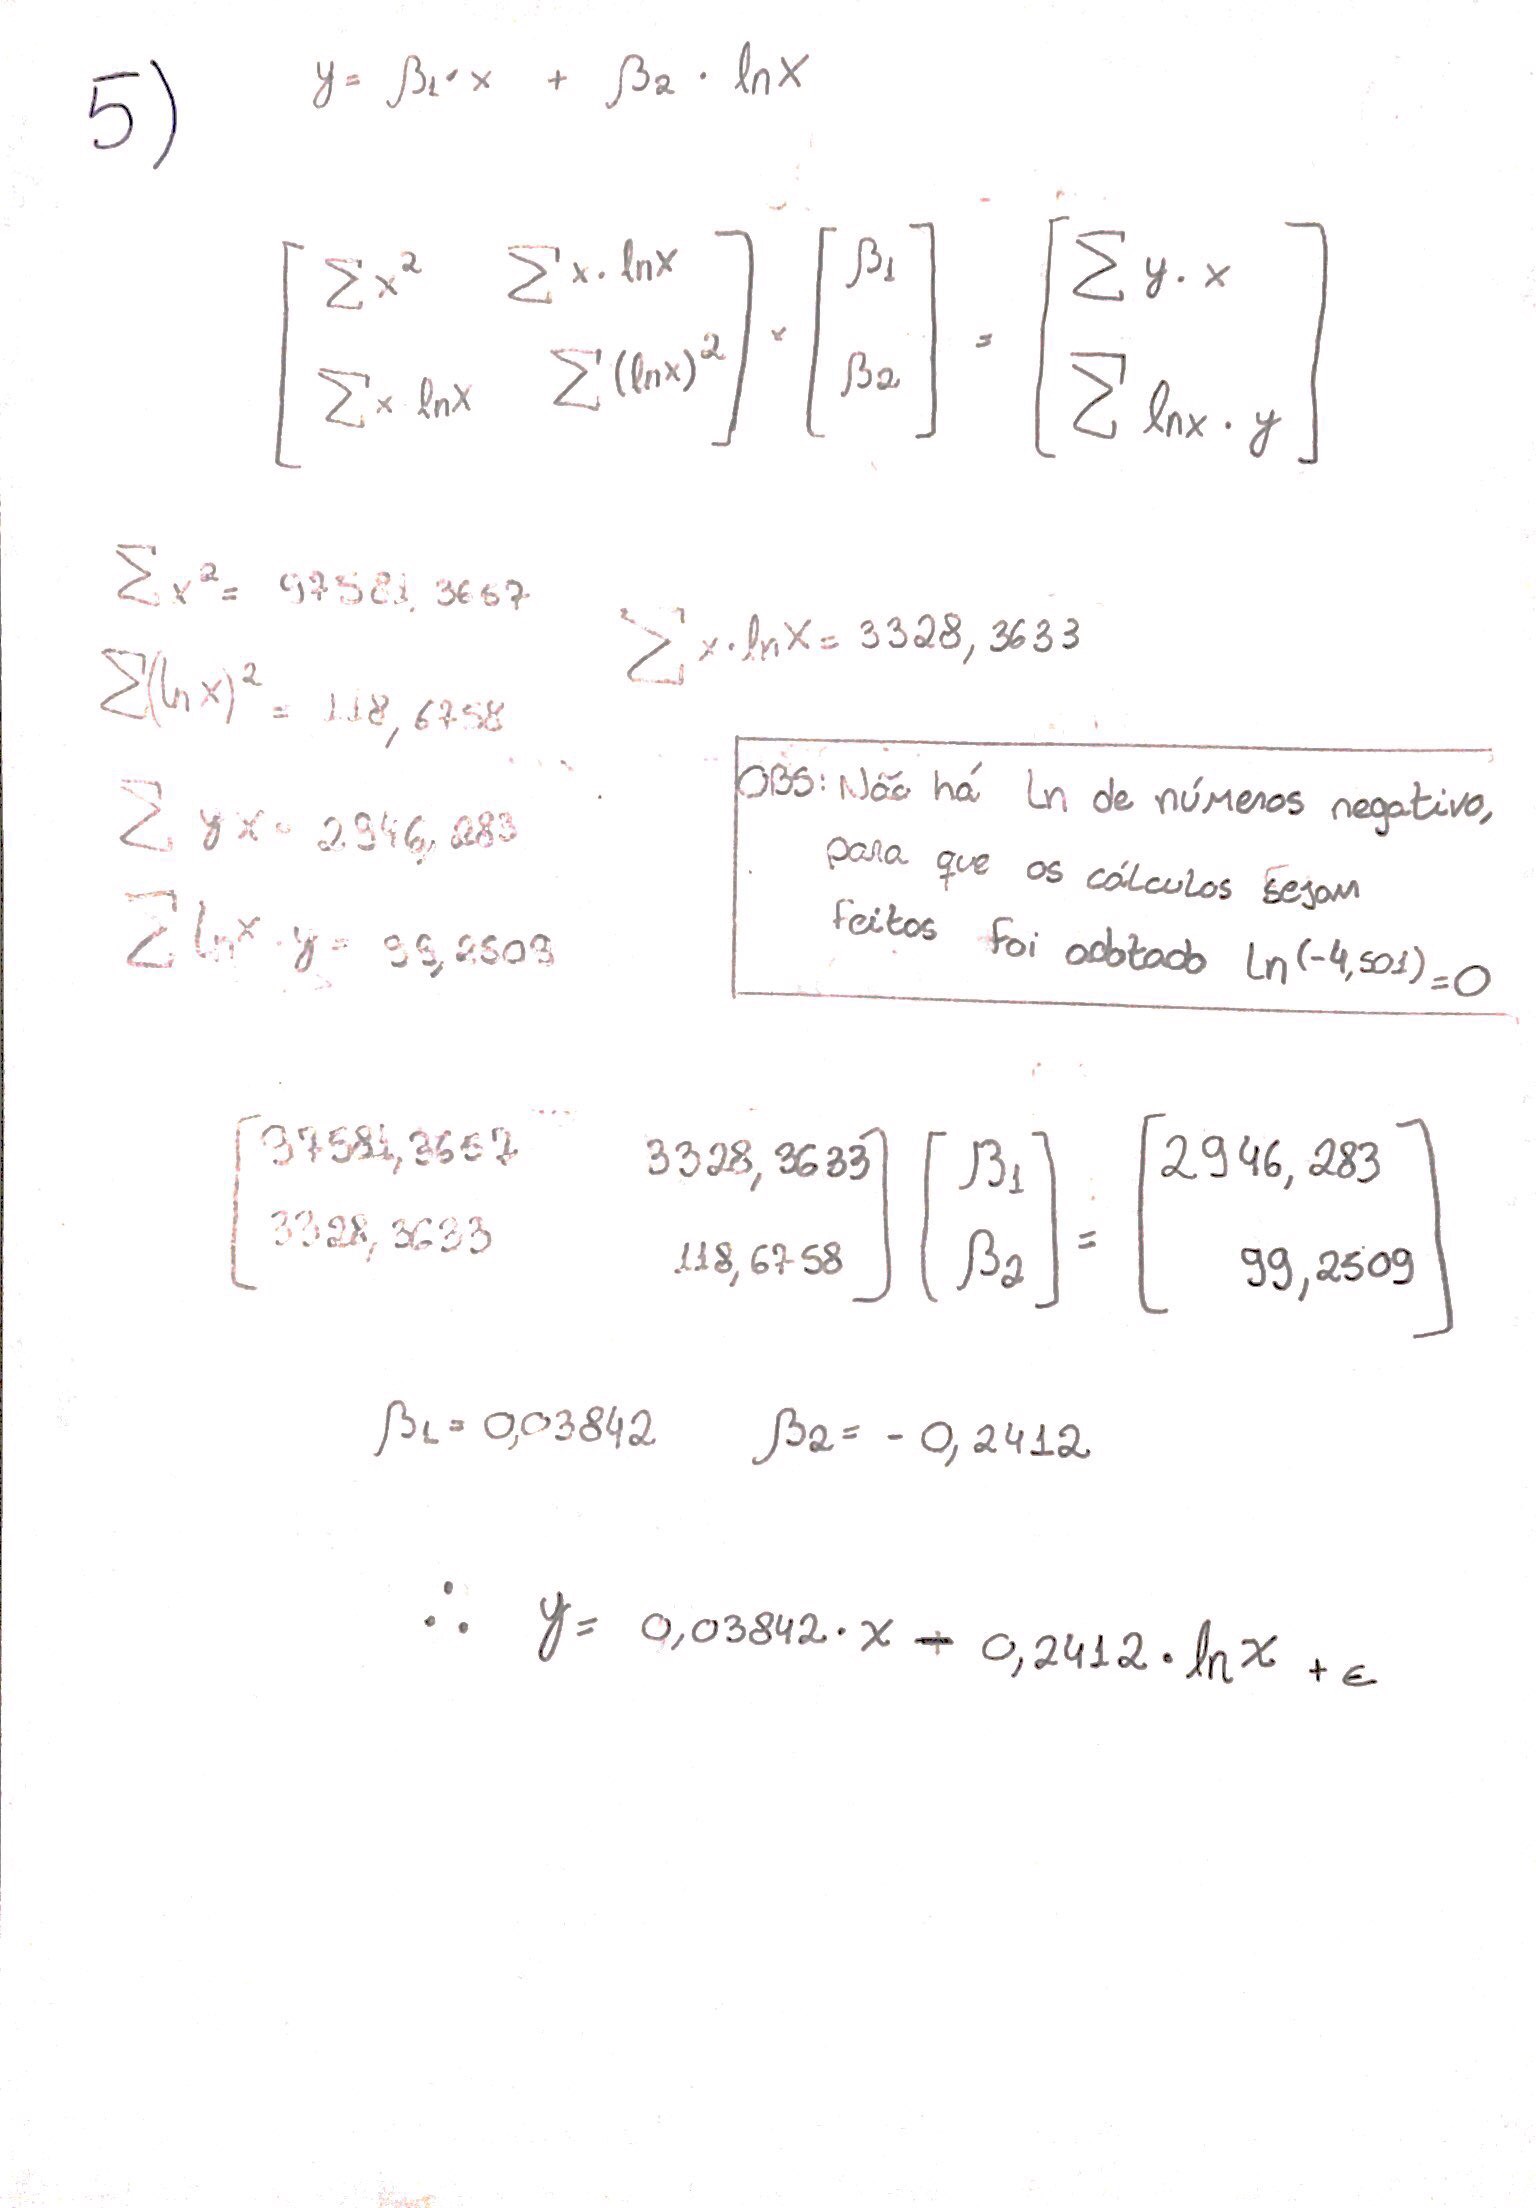 5) y = β1 · x + β2 · lnx
[ Σx² Σx · lnx ] × [ β1 ] = [ Σ y · x ]
[ Σx lnx Σ(lnx)² ] [ β2 ] [ Σ lnx · y ]
Σx² = 97581,3657
Σx · lnx = 3328,3633
Σ(lnx)² = 118,6758
Σ yx = 2946,283
Σ lnx · y = 99,2509
OBS: Não há Ln de números negativo,
para que os cálculos sejam
feitos foi adotado Ln (-4,501) = 0
[ 97581,3657 3328,3633 ] [ β1 ] = [ 2946,283 ]
[ 3328,3633 118,6758 ] [ β2 ] [ 99,2509 ]
β1 = 0,03842 β2 = - 0,2412
∴ y = 0,03842 · x - 0,2412 · lnx + ε